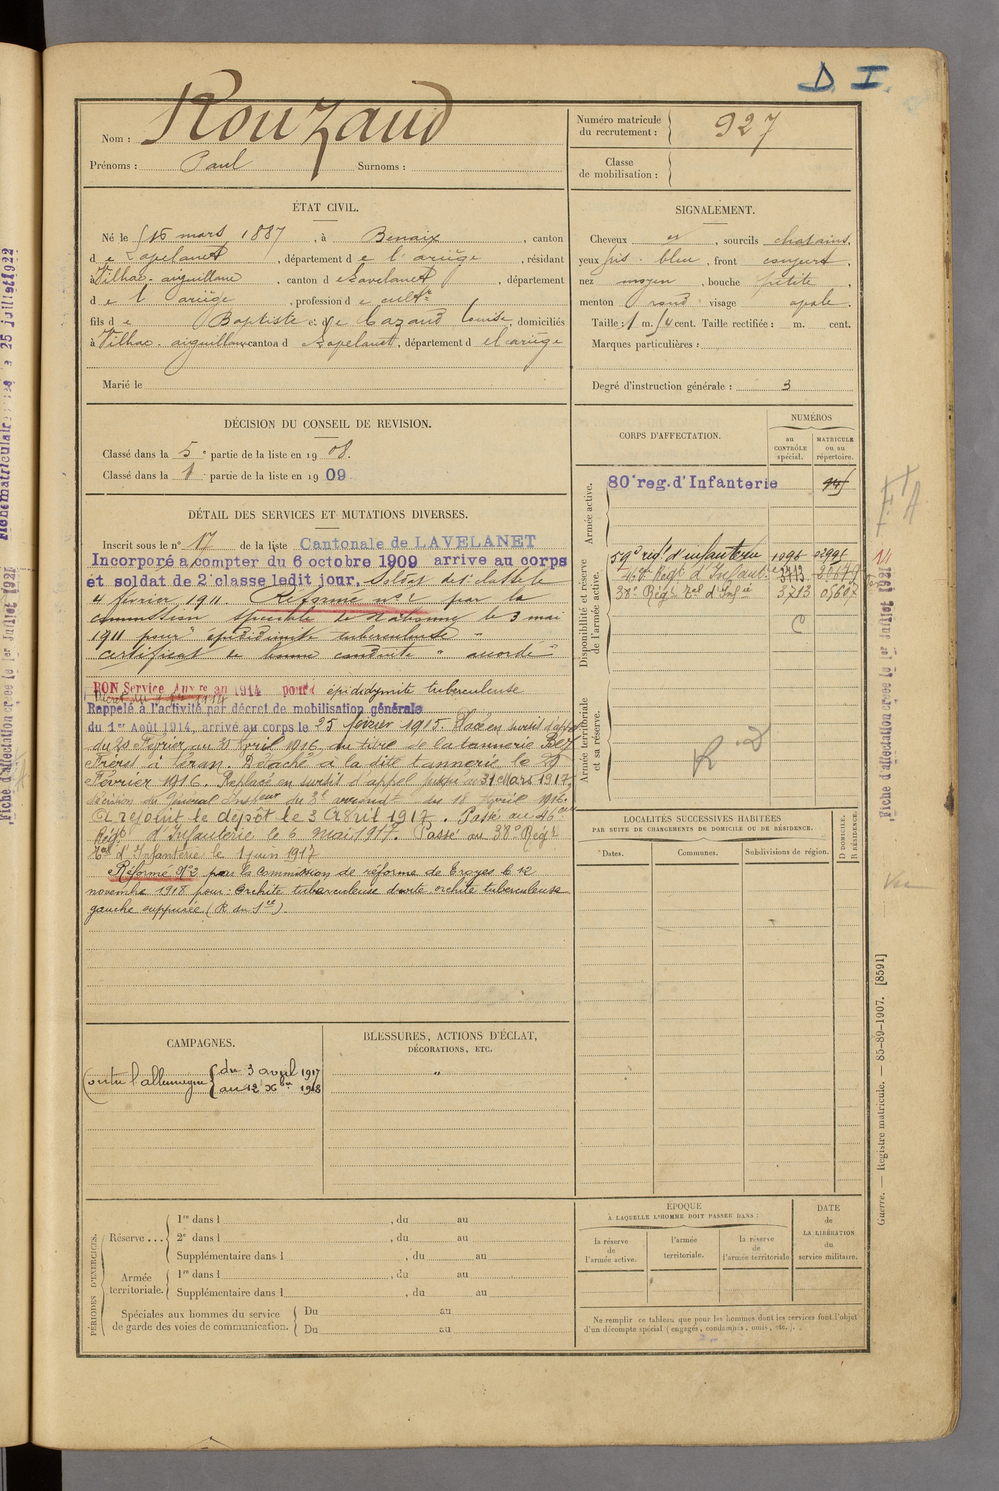 D. I.
Nom : Rouzaud
Prénoms : Paul Surnoms :
Numéro matricule
du recrutement : 927
Classe
de mobilisation :
ÉTAT CIVIL.
Né le 16 mars 1887, à Benaix, canton
de Lavelanet, département de l'ariège, résidant
à Vilhac-aiguillane, canton de Lavelanet, département
de l'ariège, profession de cultr
fils de Baptiste et de Cazaud Louise, domiciliés
à Vilhac-aiguillane canton de Lavelanet, département de l'ariège
Marié le
SIGNALEMENT.
Cheveux, sourcils chatains,
yeux gris-bleu, front couvert,
nez moyen, bouche petite,
menton rond visage ovale.
Taille : 1 m. cent. Taille rectifiée : m. cent.
Marques particulières :
Degré d'instruction générale : 3
DÉCISION DU CONSEIL DE REVISION.
Classé dans la 5e partie de la liste en 1908.
Classé dans la 1 partie de la liste en 1909
DÉTAIL DES SERVICES ET MUTATIONS DIVERSES.
Inscrit sous le n° 17 de la liste Cantonale de LAVELANET
Incorporé à compter du 6 octobre 1909 arrive au corps
et soldat de 2e classe ledit jour, Soldat de 1e classe le
4 février 1911. Réformé n° 2 par la
commission spéciale de le 3 mai
1911 pour "épididimite tuberculeuse"
certificat de bonne conduite "accordé"
BON Service Auxre an 1914 pour épididymite tuberculeuse
Rappelé à l'activité par décret de mobilisation générale
du 1er Août 1914, arrivé au corps le 25 février 1915. Placé en sursis d'appel
du 29 Février au 30 Avril 1916 au titre de la tannerie
Frères à Léran. Détaché à la dite tannerie le 29
Février 1916. Replacé en sursis d'appel jusqu'au 31 Mars 1917
décision du Général Inspeur du 3e arrondt du 18 Avril 1916.
A rejoint le dépôt le 3 Avril 1917. Passé au 46e
Régt d'Infanterie le 6 mai 1917. Passé au 38e Régt
Tal d'Infanterie le 1 juin 1917
Réformé N°2 par la Commission de réforme de Troyes le 12
novembre 1918 pour : Orchite tuberculeuse droite orchite tuberculeuse
gauche suppurée (R du Sce).
CORPS D'AFFECTATION.
NUMÉROS
au
CONTRÔLE
spécial.
MATRICULE
ou au
répertoire.
Armée active.
80e reg. d'Infanterie
Disponibilité et réserve
de l'armée active.
59e régt d'infanterie
46e Régt d'Infanterie
38e Régt Tal d'Infie 3713
C
Armée territoriale
et sa réserve.
LOCALITÉS SUCCESSIVES HABITÉES
PAR SUITE DE CHANGEMENTS DE DOMICILE OU DE RÉSIDENCE.
Dates. Communes. Subdivisions de région.
D DOMICILE.
R RÉSIDENCE.
CAMPAGNES.
Contre l'allemagne du 3 avril 1917
au 12 Xbre 1918
BLESSURES, ACTIONS D'ÉCLAT,
DÉCORATIONS, ETC.
"
PÉRIODES D'EXERCICES.
Réserve...
1re dans l , du au
2e dans l , du au
Supplémentaire dans l , du au
Armée
territoriale.
1re dans l , du au
Supplémentaire dans l , du au
Spéciales aux hommes du service
de garde des voies de communication.
Du au
Du au
EPOQUE
À LAQUELLE L'HOMME DOIT PASSER DANS :
la réserve
de
l'armée active.
l'armée
territoriale.
la réserve
de
l'armée territoriale
DATE
de
LA LIBÉRATION
du
service militaire.
Ne remplir ce tableau que pour les hommes dont les services font l'objet
d'un décompte spécial (engagés, condamnés, omis, etc.).
Guerre. — Registre matricule. — 85-89-1907. [8591]
Fiche d'affectation créée le 1er Juillet 1921
Fiche d'affectation créée le 1er Juillet 1921
25 juillet 1922